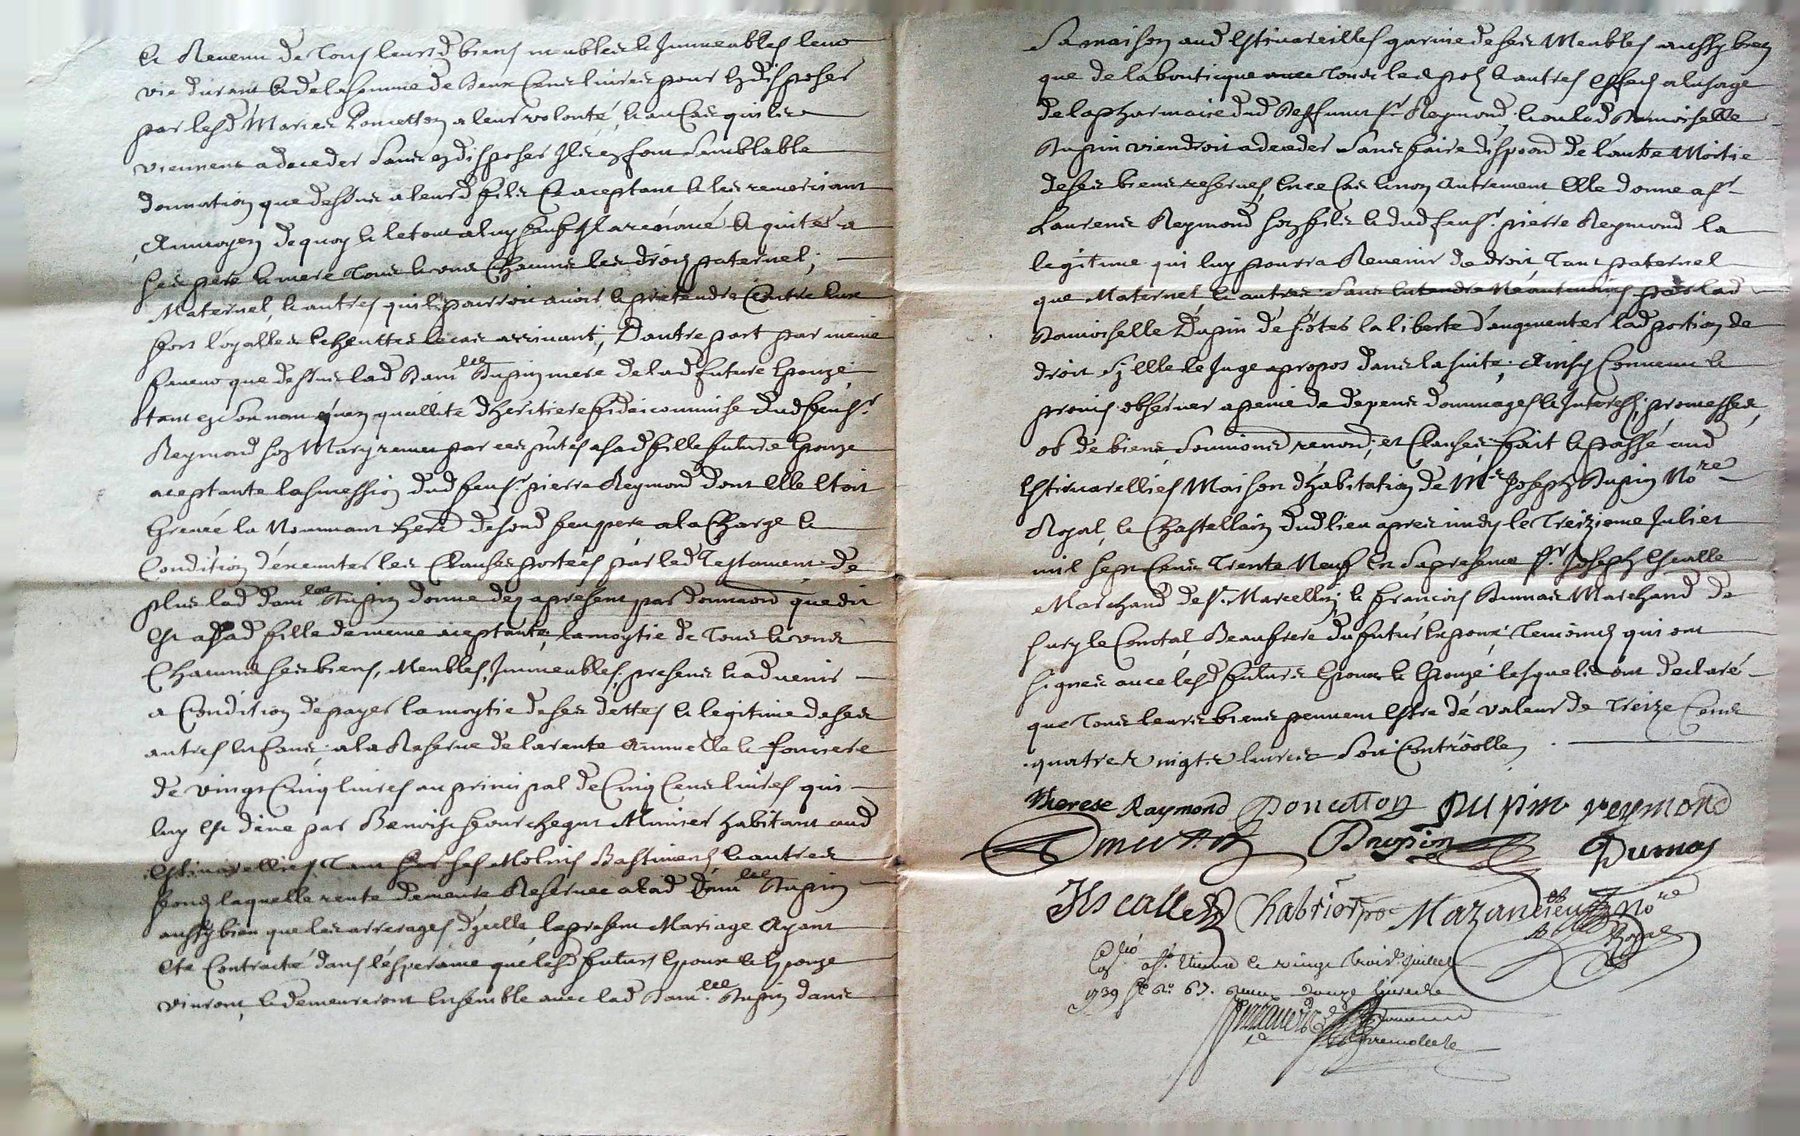 le Revenu de tous leursd biens meubles et Immeubles leur
vie durant et de la somme de deux cens livres pour en disposer
par lesd Mariés Poncetton a leur volonté, et au cas quils
viennent a deceder sans en disposer Ils en font semblable
donnation que dessus a leurd fils ce aceptant et les remerciant
Aumoyen de quoy et le tout aluy sauf Il a renoncé et quitté a
ses pere et mere tous et uns chacuns les droits paternel,
Maternel, et autres quil pourroit avoir et pretendre Contre eux
fors loyalles echeuttes le cas arrivant, D'autre part par meme
faveur que dessus lad dam.lle Dupin mere de lad future Epouze,
tant en son nom qu'en quallité d'heritiere fideicommise dud feu s.r
Reymond son Mary remet par ces pntes a sad fille future Epouze
aceptante la sucession dud feu s.r pierre Reymond dont elle etoit
Grevée la Nommant herd desond feu pere, a la Charge et
Condition d'executer les Clauses portées par led Testament De
plus lad dam.lle Dupin donne dez apresent par donnaond que dit
est a sad fille de meme aceptante, la moytie de tous et uns
Chacuns ses biens, Meubles, Immeubles, presens et advenir
a Condition de payer la moytie de ses dettes et legitime de ses
autres enfans, a la Reserve de la rente Annuelle et fonciere
de vingt Cinq livres au principal de Cinq Cens livres qui
luy est düe par Benoist fourchegut Munier habitant aud
Estivareilles, tant sur ses Molins Bastimens et autres
fonds laquelle rente demeure Reservée a lad Dam.lle Dupin
aussy bien que les arrerages d'ycelle, le present Mariage Ayant
eté Contracté dans l'ésperance que lesd futurs Epoux et Epouze
vivront, et demeureront Ensemble avec lad dam.lle Dupin dans
Sa maison aud Estivareilles garnie de ses Meubles aussy bien
que de la boutique avec tous les pots et autres effets a lusage
de la pharmacie dud deffunt s.r Reymond, et ou lad damoiselle
Dupin viendroit a deceder sans faire dispoond de l'autre Moitie
de ses biens reservés, en ce Cas et non autrement Elle donne a s.r
Laurens Reymond son fils et dud feu s.r pierre Reymond la
legitime qui luy pourra Revenir de droit tant paternel
que Maternel, et autres sans entendre Neantmoins par lad
damoiselle Dupin de s'ôter la liberté d'augmenter lad portion de
droit sy Elle le Juge a propos dans la suite, Ainsy Convenu et
promis observer a peine de depens dommages et Interest, promesses,
ob de biens, soumions renond, et Clauses, fait et passé aud
Estivareilles Maison d'habitation de M.e Joseph Dupin No.re
Royal, et Chastellain dud lieu apres midy le Treizieme Juliet
mil sept Cens trente Neuf En la presence s.r Joseph Escalle
Marchand de s.t Marcellin, et françois Dumas Marchand de
sury le Comtal Beaufrere du futur Epoux, temoins qui ont
signés avec lesd futurs Epoux et Epouze lesquels ont declaré
que tous leurs biens peuvent estre de valeur de Treize Cens
quatre vingts livres soit Controollé
Therese Raymond Poncetton Dupin reymond
Poncetton Dupin Dumas
J Escalle Chabrier Mazandieu No.re
Royal
a s.t Etienne le vingt trois Juillet
1739 f.o 67. douze livres